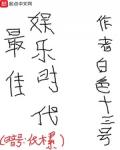 起点中文网
最佳
娱乐时代
作者白色十三号
(暗号: